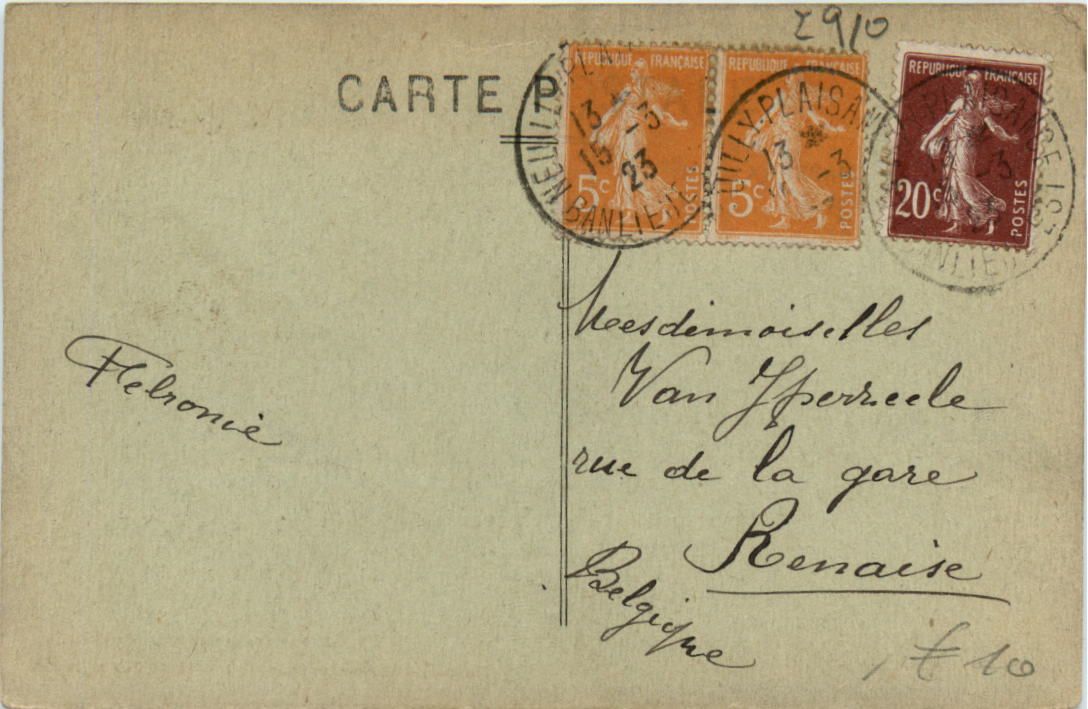 2910
CARTE P
REPUBLIQUE FRANÇAISE
5c
POSTES
REPUBLIQUE FRANÇAISE
5c
POSTES
REPUBLIQUE FRANÇAISE
20c
POSTES
NEUILLY-PLAI
13 -3
15 23
BANLIEUE
UILLY-PLAISAN
13 -3
PLAISANCE
-3
BANLIEUE
Mesdemoiselles
Van
rue de la gare
Renaise
Belgique
€ 10